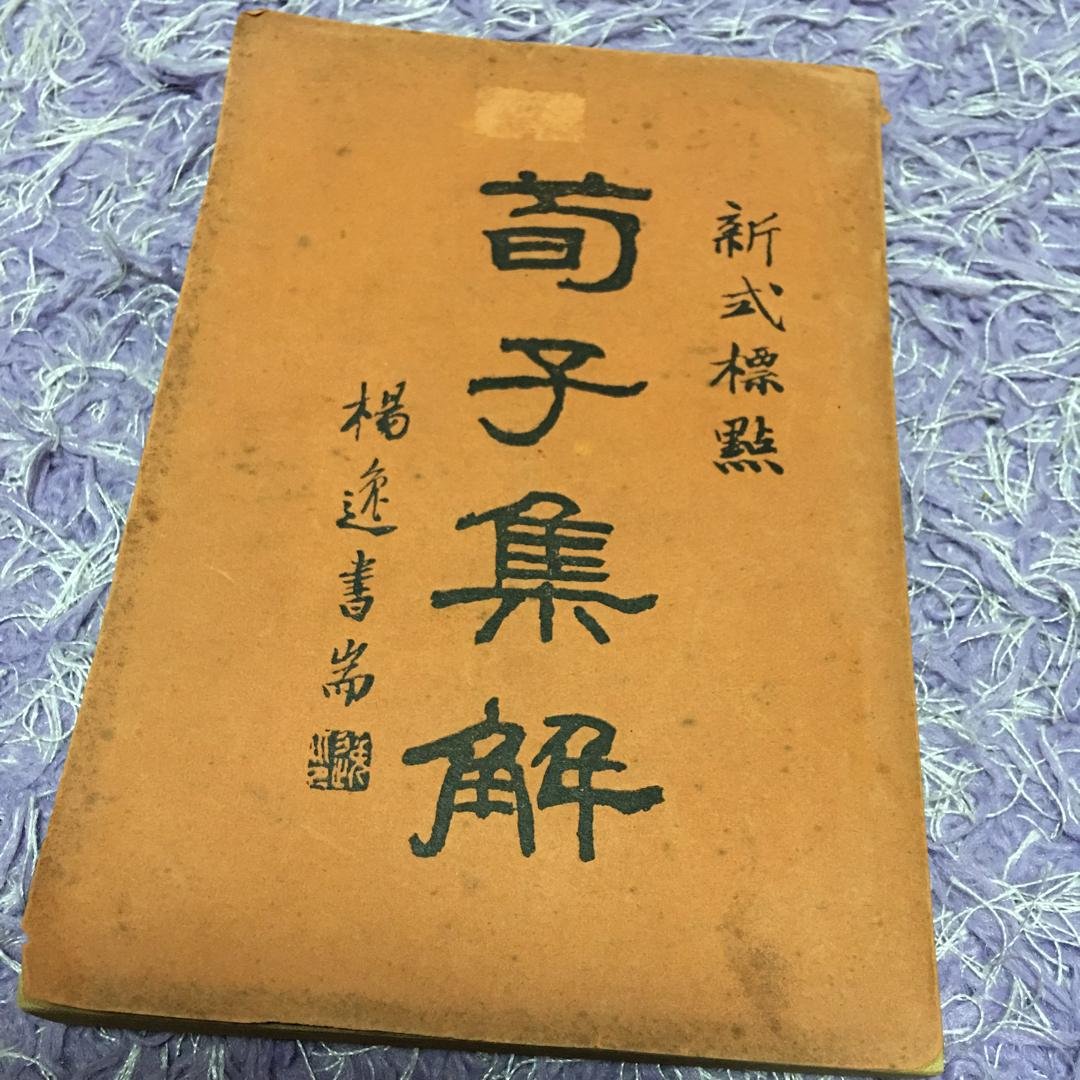 新式標點
荀子集解
楊逸書耑